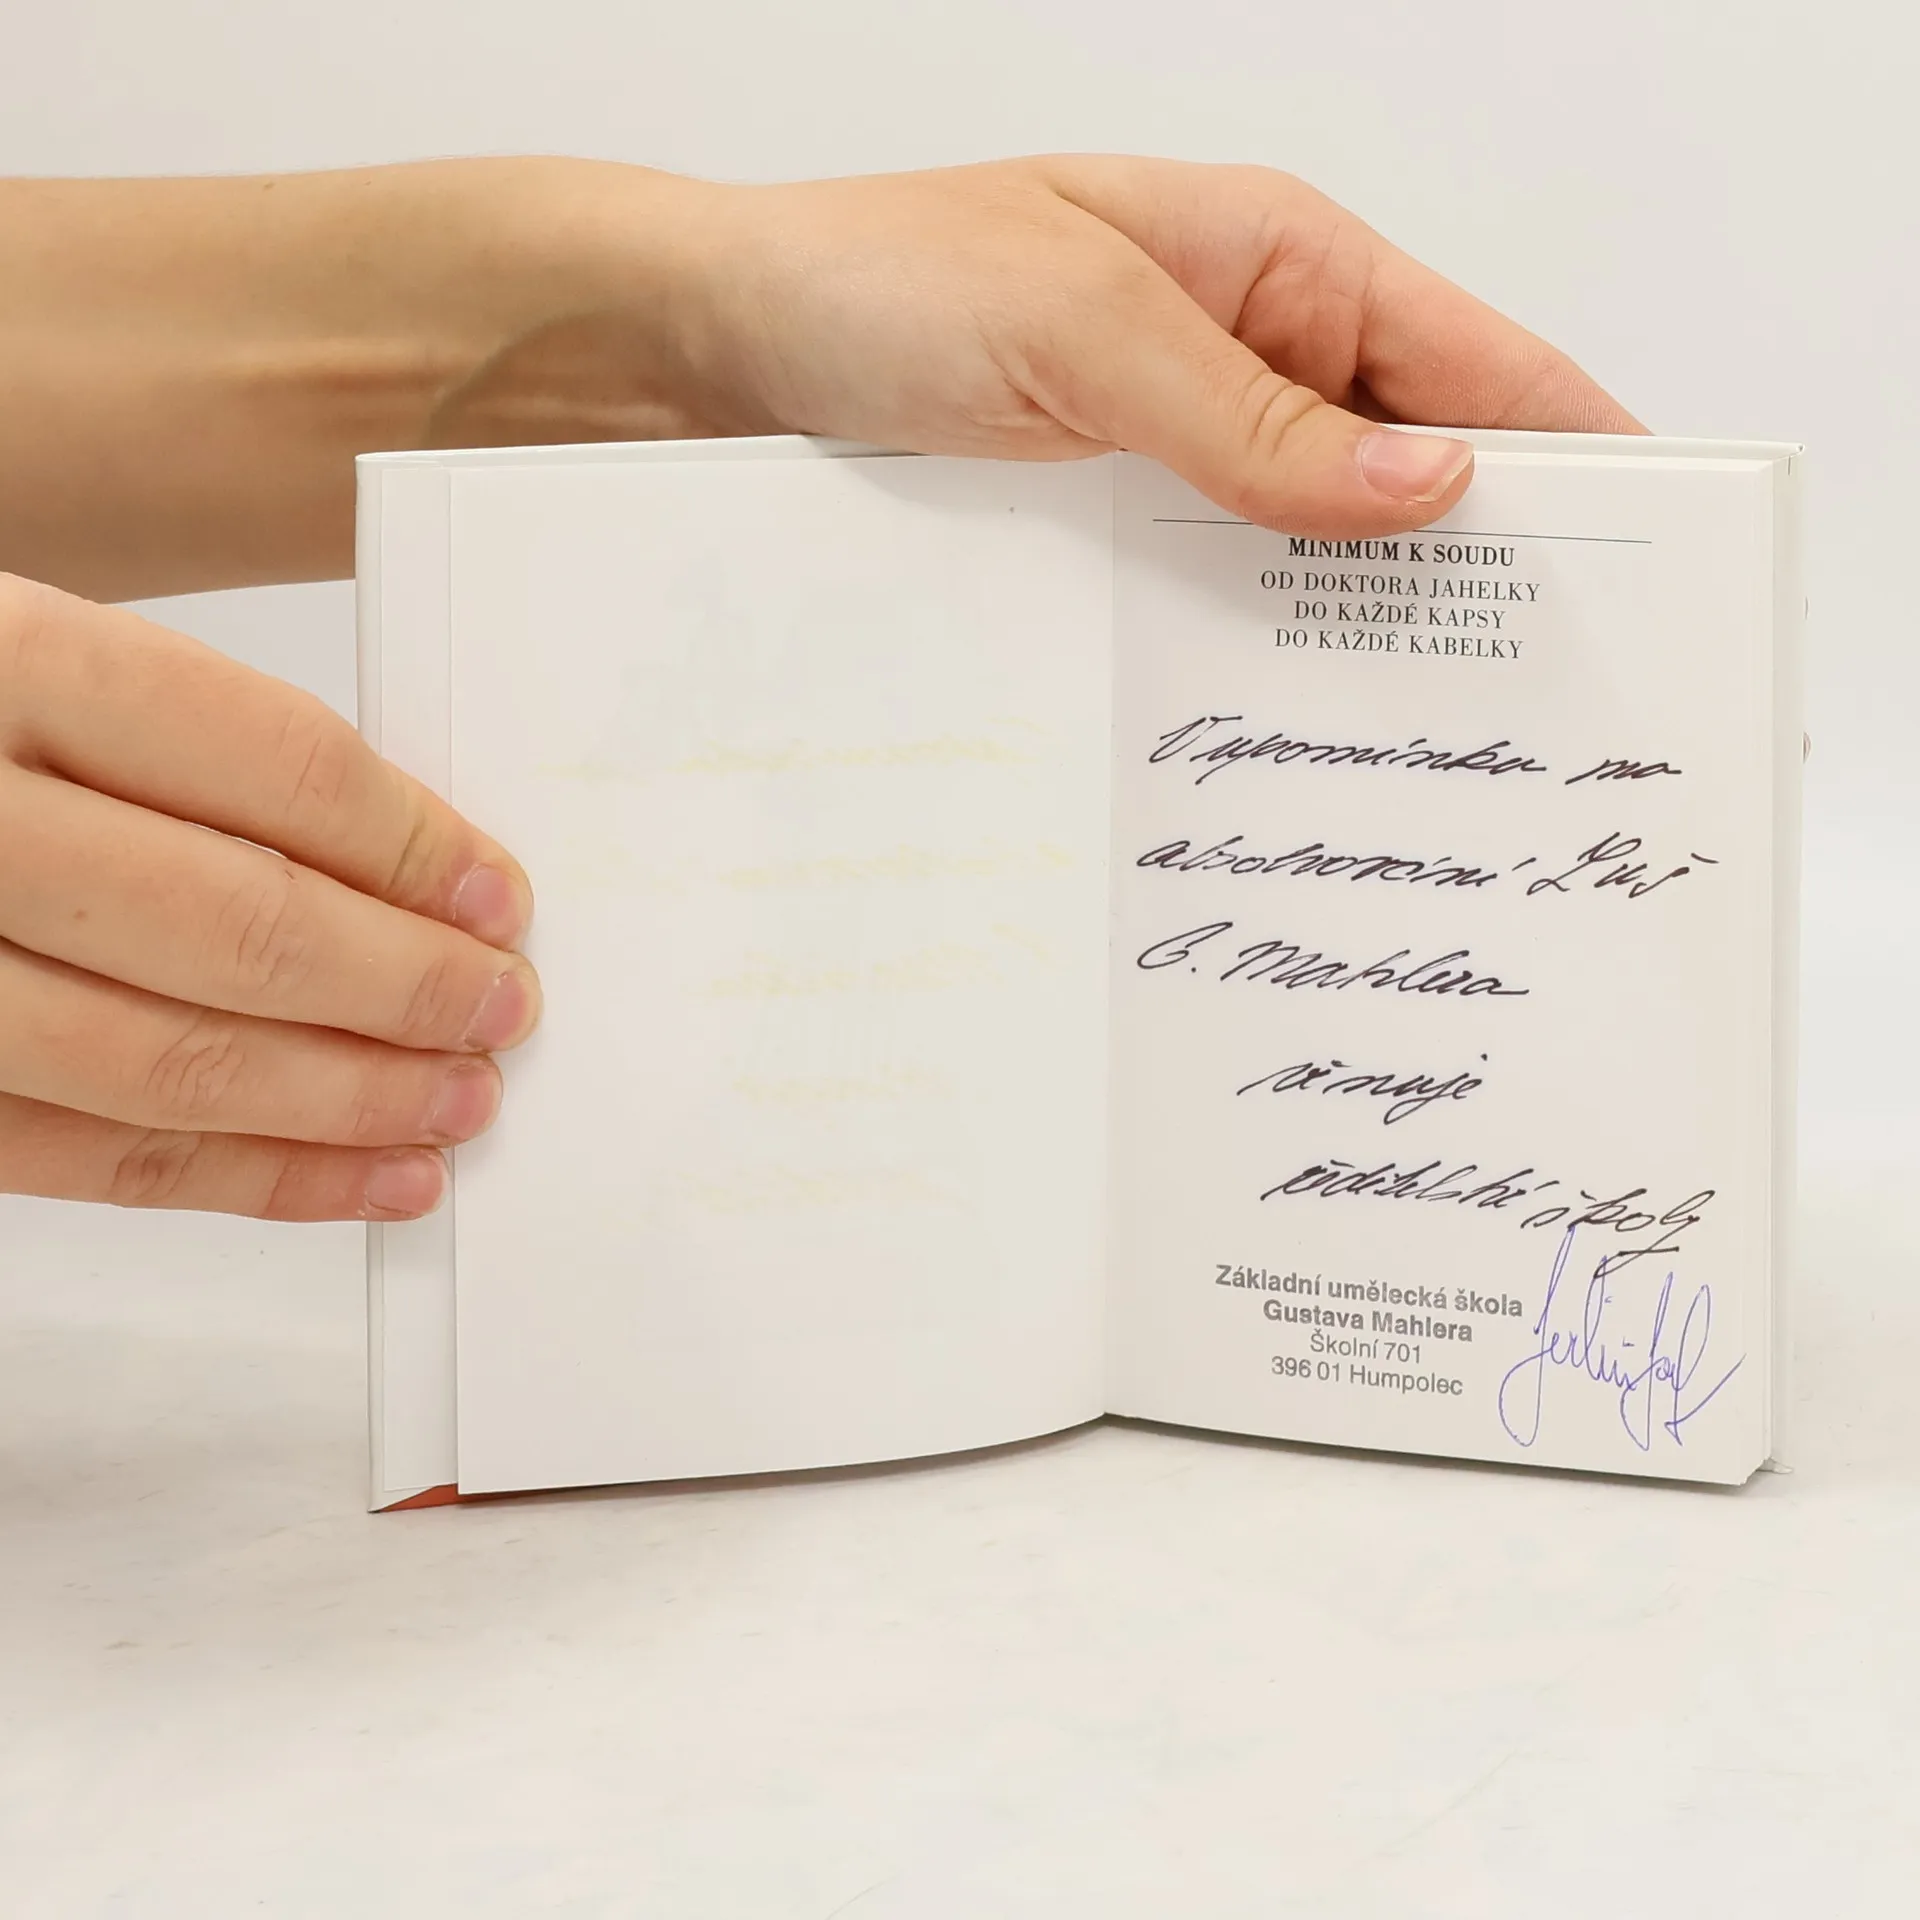 MINIMUM K SOUDU
OD DOKTORA JAHELKY
DO KAŽDÉ KAPSY
DO KAŽDÉ KABELKY
Vupomínku na
absolvování Zuš
G. Mahlera
věnuje
ředitelství školy
Základní umělecká škola
Gustava Mahlera
Školní 701
396 01 Humpolec